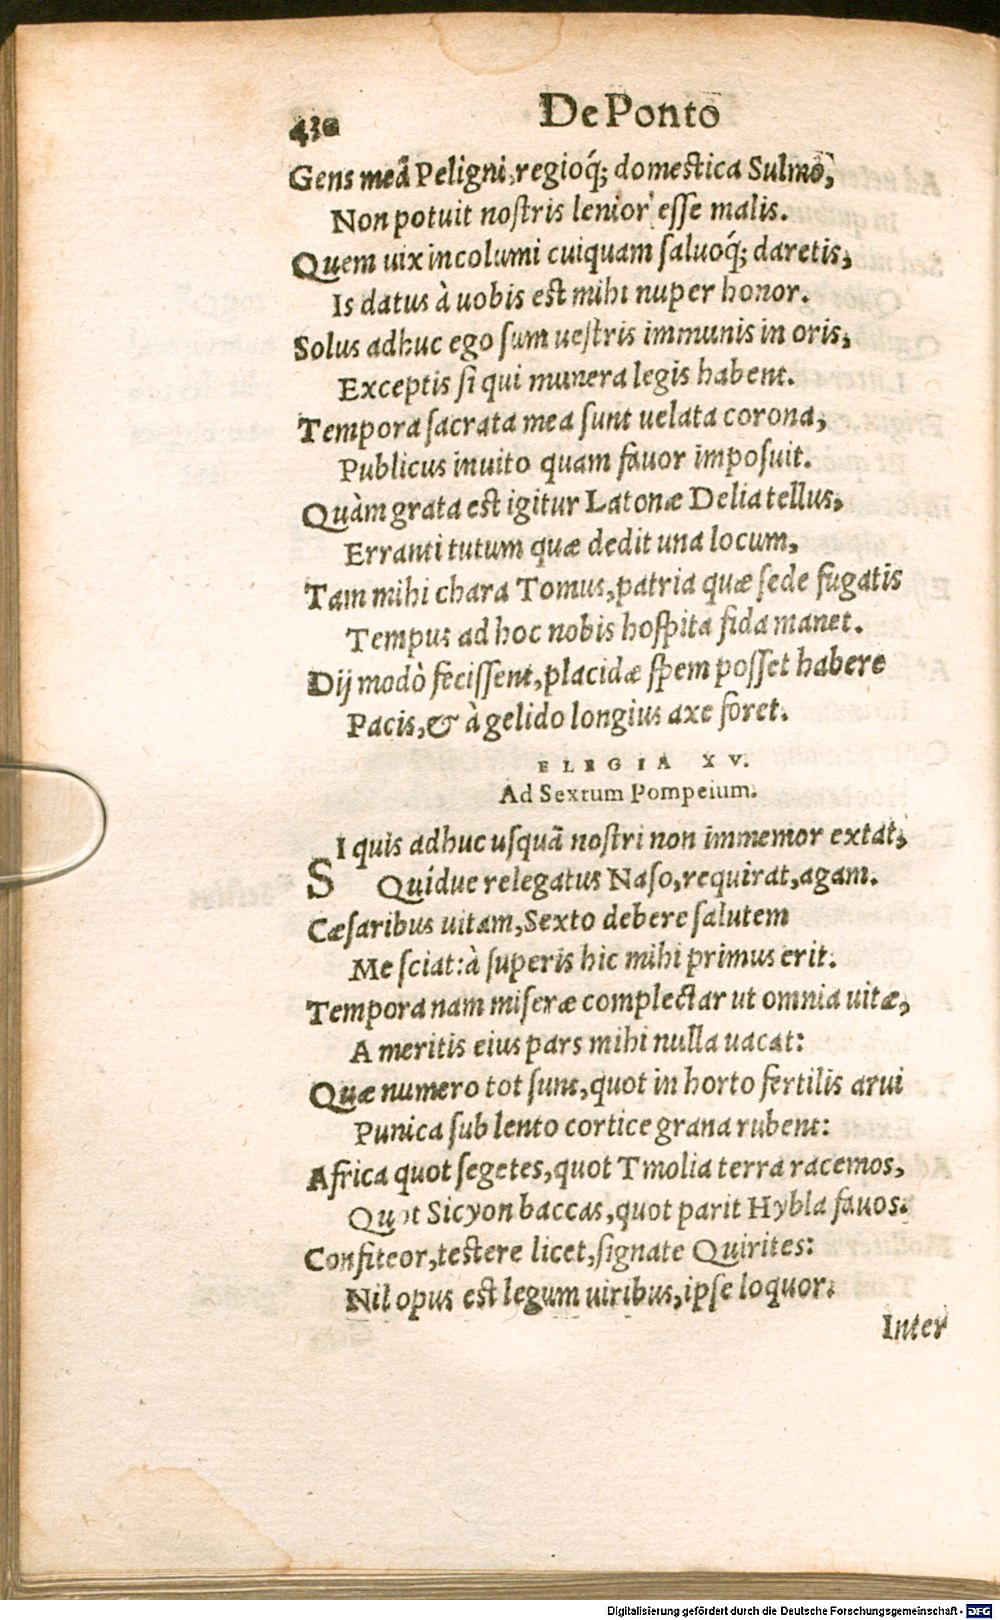 430
De Ponto
Gens meā Peligni, regioq́; domestica Sulmo,
Non potuit nostris lenior esse malis.
Quem uix incolumi cuiquam saluoq́; daretis,
Is datus à uobis est mihi nuper honor.
Solus adhuc ego sum uestris immunis in oris,
Exceptis si qui munera legis habent.
Tempora sacrata mea sunt uelata corona,
Publicus inuito quam fauor imposuit.
Quàm grata est igitur Latonæ Delia tellus,
Erranti tutum quæ dedit una locum,
Tam mihi chara Tomus, patria quæ sede fugatis
Tempus ad hoc nobis hospita fida manet.
Dij modò fecissent, placidæ spem posset habere
Pacis, & à gelido longius axe foret.
ELEGIA XV.
Ad Sextum Pompeium.
SI quis adhuc usquā nostri non immemor extat,
Quidue relegatus Naso, requirat, agam.
Cæsaribus uitam, Sexto debere salutem
Me sciat: à superis hic mihi primus erit.
Tempora nam miseræ complectar ut omnia uitæ,
A meritis eius pars mihi nulla uacat:
Quæ numero tot sunt, quot in horto fertilis arui
Punica sub lento cortice grana rubent:
Africa quot segetes, quot Tmolia terra racemos,
Quot Sicyon baccas, quot parit Hybla fauos.
Confiteor, testere licet, signate Quirites:
Nil opus est legum uiribus, ipse loquor.
Inter
Digitalisierung gefördert durch die Deutsche Forschungsgemeinschaft - DFG